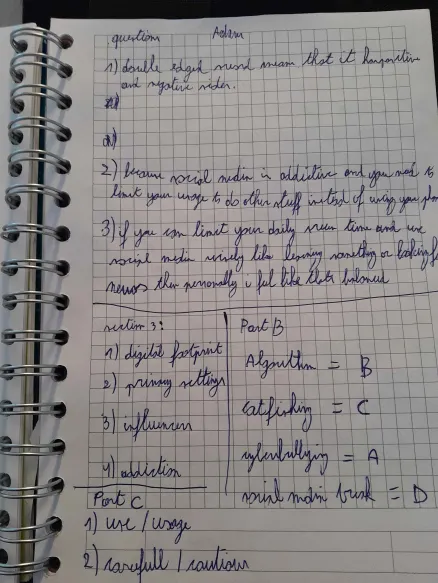 question Adam
1) double edged sword mean that it has positive
and negative sides.
2) because social media is addictive and you need to
limit your usage to do other stuff instead of using your
3) if you can limit your daily screen time and use
social media wisely like learning something or looking
news then personally i feel like thats balanced
section 3:
1) digital footprint
2) privacy settings
3) influencers
4) addiction
Part B
Algorithm = B
catfishing = C
cyberbullying = A
social media break = D
Part C
1) use / usage
2) carefull / cautious